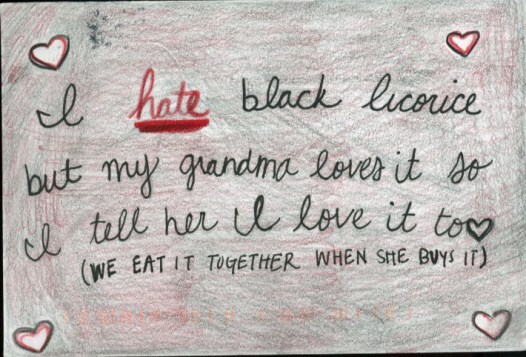 I hate black licorice
but my grandma loves it so
I tell her I love it to
(WE EAT IT TOGETHER WHEN SHE BUYS IT)